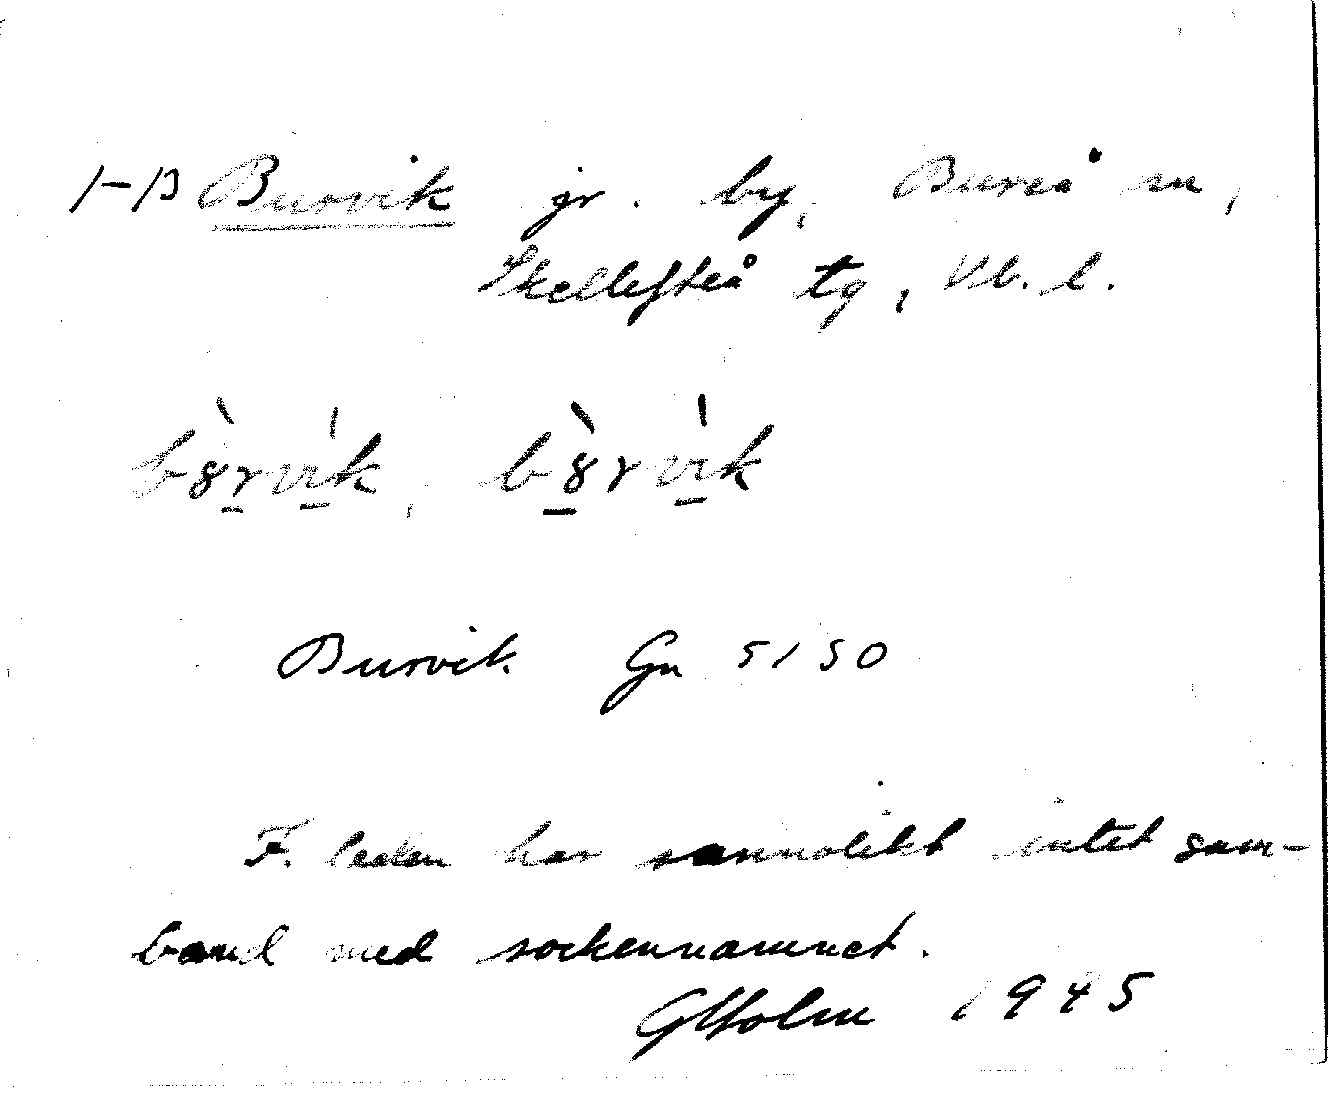 1-13 Burvik gr. by, Bureå sn,
Skellefteå tg, Vb. l.
Burvik Gn 5150
F. leden har sannolikt intet sam-
band med sockennamnet.
GHolm 1945